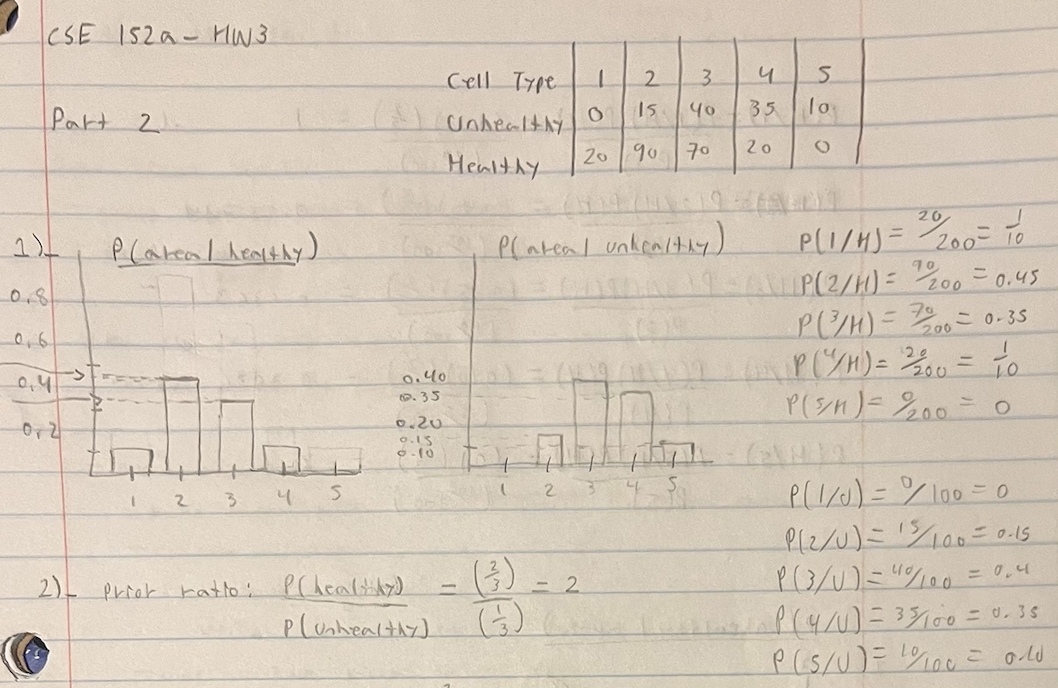 CSE 152a - HW3
Part 2
Cell Type 1 2 3 4 5
Unhealthy 0 15 40 35 10
Healthy 20 90 70 20 0
1) P(area | healthy)
0.8
0.6
0.4
0.2
1 2 3 4 5
P(area | unhealthy)
0.40
0.35
0.20
0.15
0.10
1 2 3 4 5
P(1/H) = 20/200 = 1/10
P(2/H) = 90/200 = 0.45
P(3/H) = 70/200 = 0.35
P(4/H) = 20/200 = 1/10
P(5/H) = 0/200 = 0
P(1/U) = 0/100 = 0
P(2/U) = 15/100 = 0.15
P(3/U) = 40/100 = 0.4
P(4/U) = 35/100 = 0.35
P(5/U) = 10/100 = 0.10
2) Prior ratio: P(healthy) / P(unhealthy) = (2/3) / (1/3) = 2